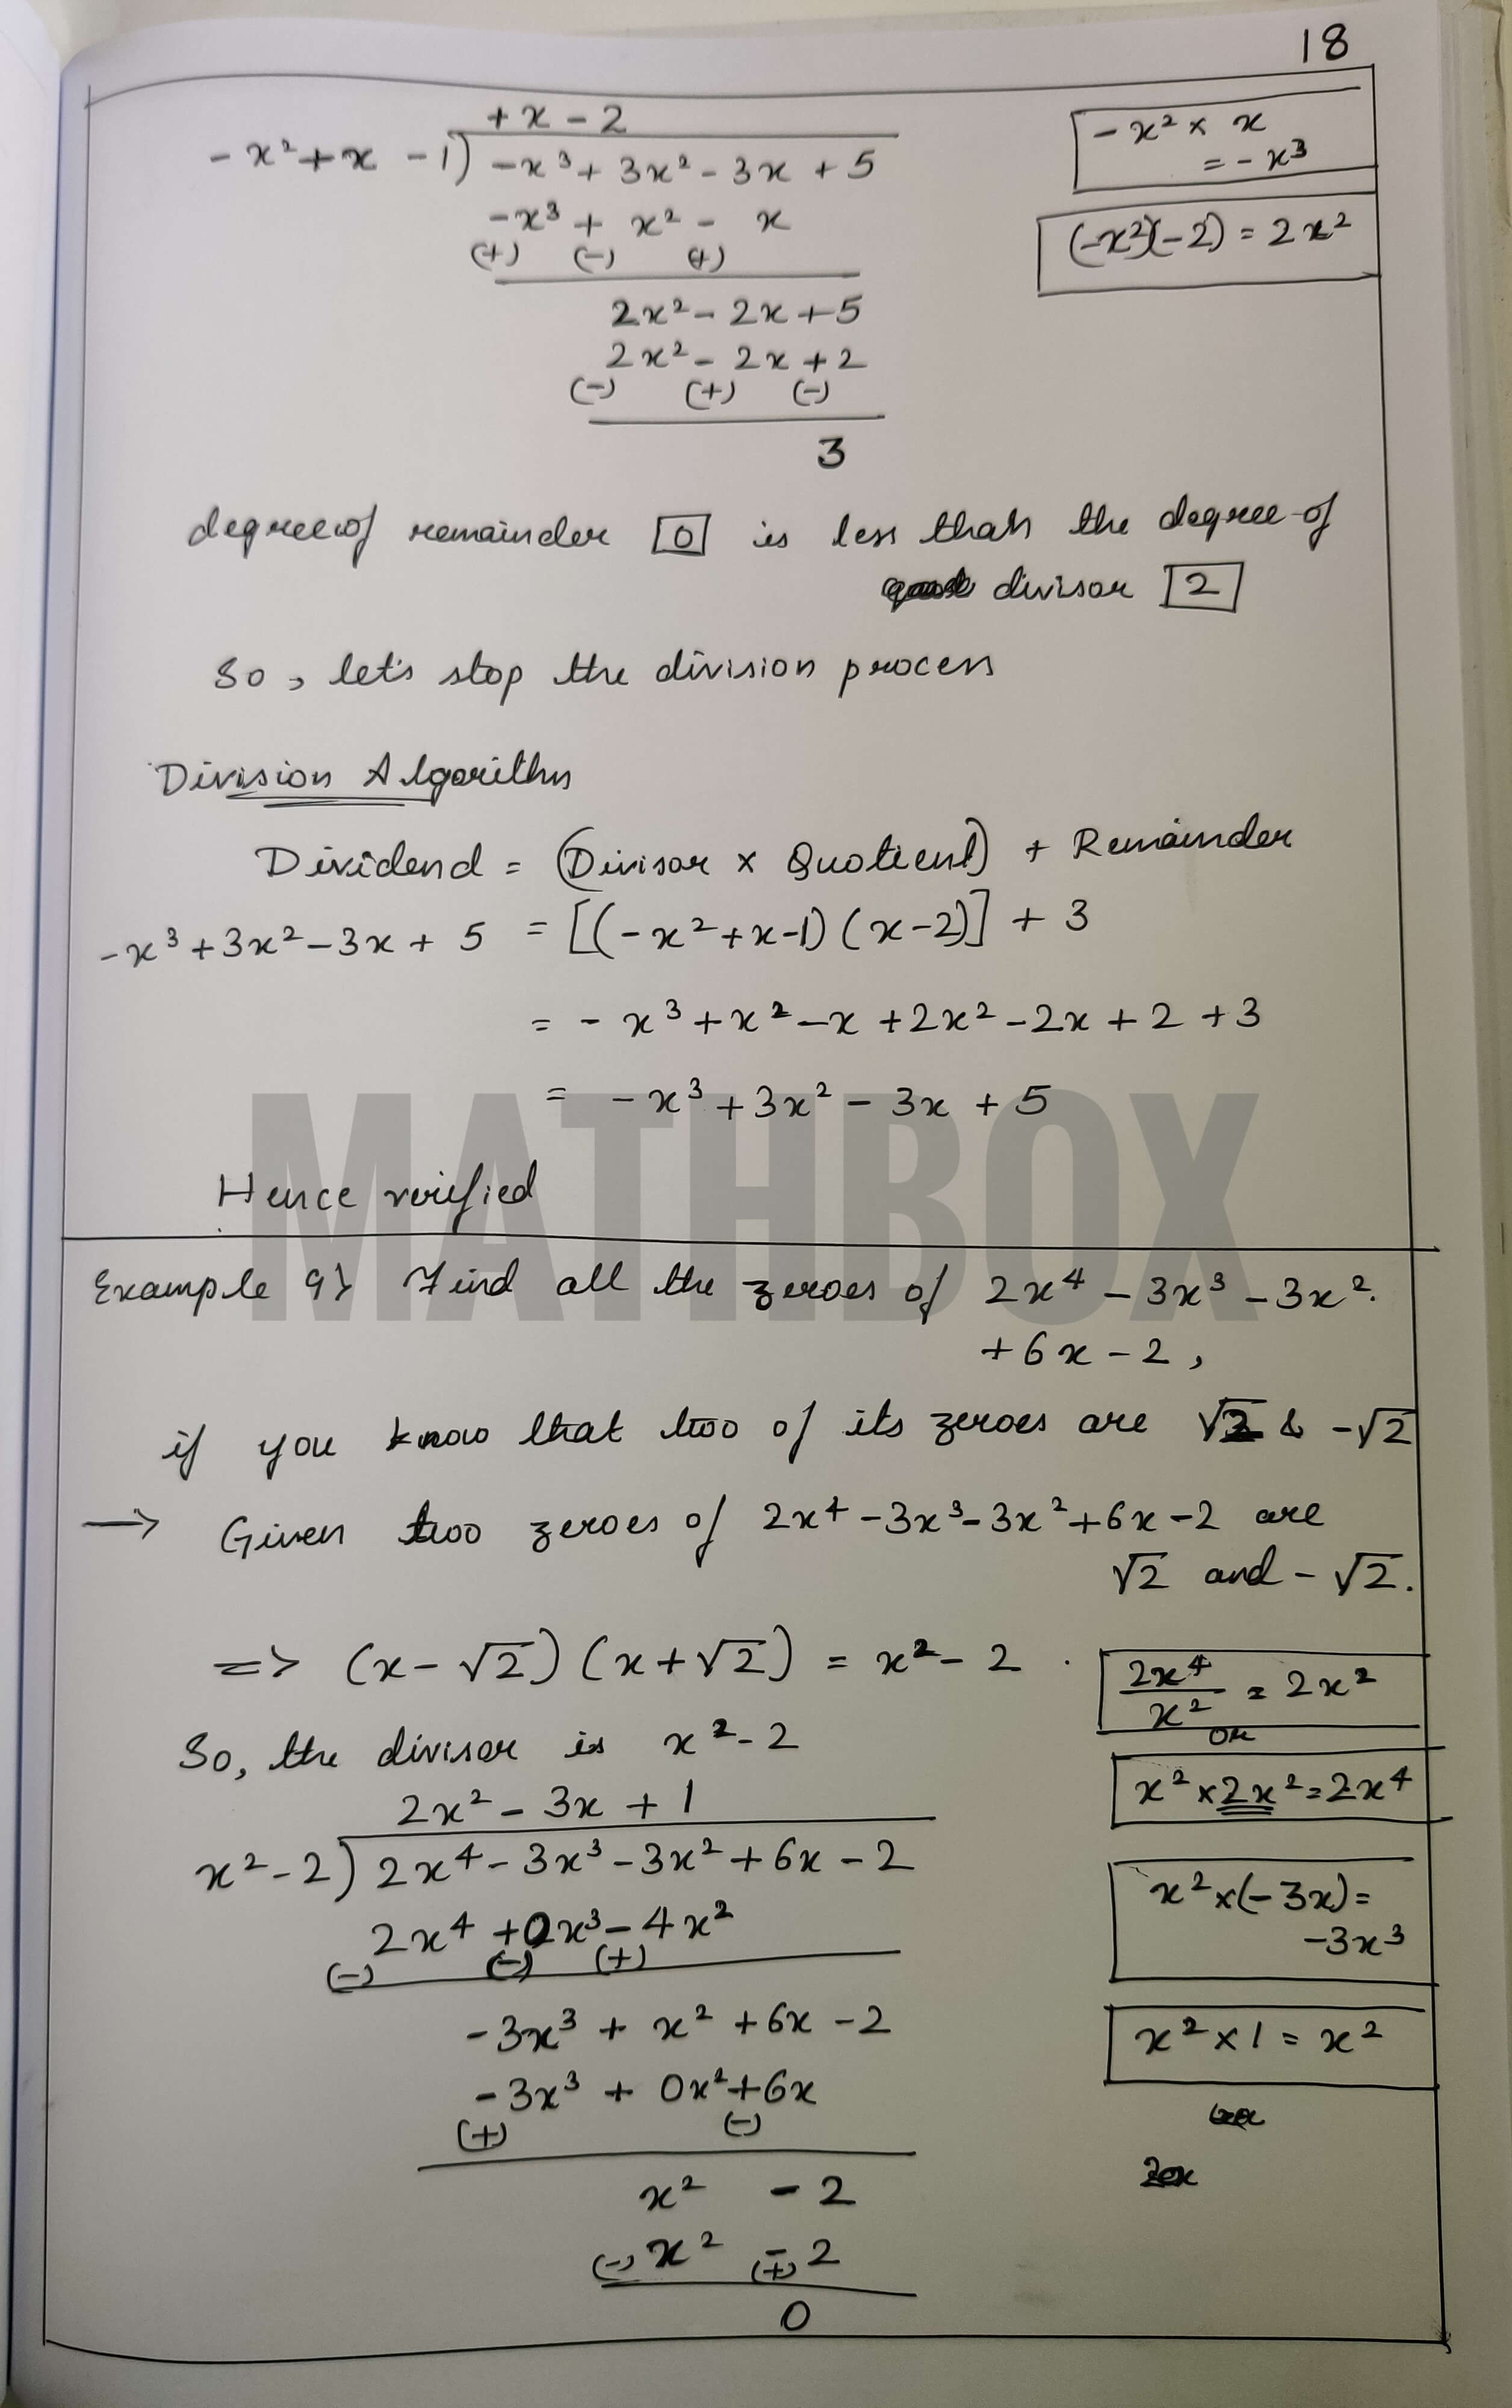 18
+x - 2
-x² + x - 1) -x³ + 3x² - 3x + 5
-x³ + x² - x
(+) (-) (+)
2x² - 2x + 5
2x² - 2x + 2
(-) (+) (-)
3
-x² × x
= -x³
(-x²)(-2) = 2x²
degree of remainder 0 is less than the degree of
divisor 2
So, let's stop the division process
Division Algorithm
Dividend = (Divisor × Quotient) + Remainder
-x³ + 3x² - 3x + 5 = [(-x² + x - 1)(x - 2)] + 3
= -x³ + x² - x + 2x² - 2x + 2 + 3
= -x³ + 3x² - 3x + 5
Hence verified
MATHBOX
Example 9} Find all the zeroes of 2x⁴ - 3x³ - 3x²
+ 6x - 2,
if you know that two of its zeroes are √2 & -√2
→ Given two zeroes of 2x⁴ - 3x³ - 3x² + 6x - 2 are
√2 and -√2.
=> (x - √2)(x + √2) = x² - 2.
So, the divisor is x² - 2
2x² - 3x + 1
x² - 2) 2x⁴ - 3x³ - 3x² + 6x - 2
2x⁴ + 0x³ - 4x²
(-) (-) (+)
-3x³ + x² + 6x - 2
-3x³ + 0x² + 6x
(+) (-)
x² - 2
(-) x² - 2
(+)
0
2x⁴/x² = 2x²
or
x² × 2x² = 2x⁴
x² × (-3x) =
-3x³
x² × 1 = x²